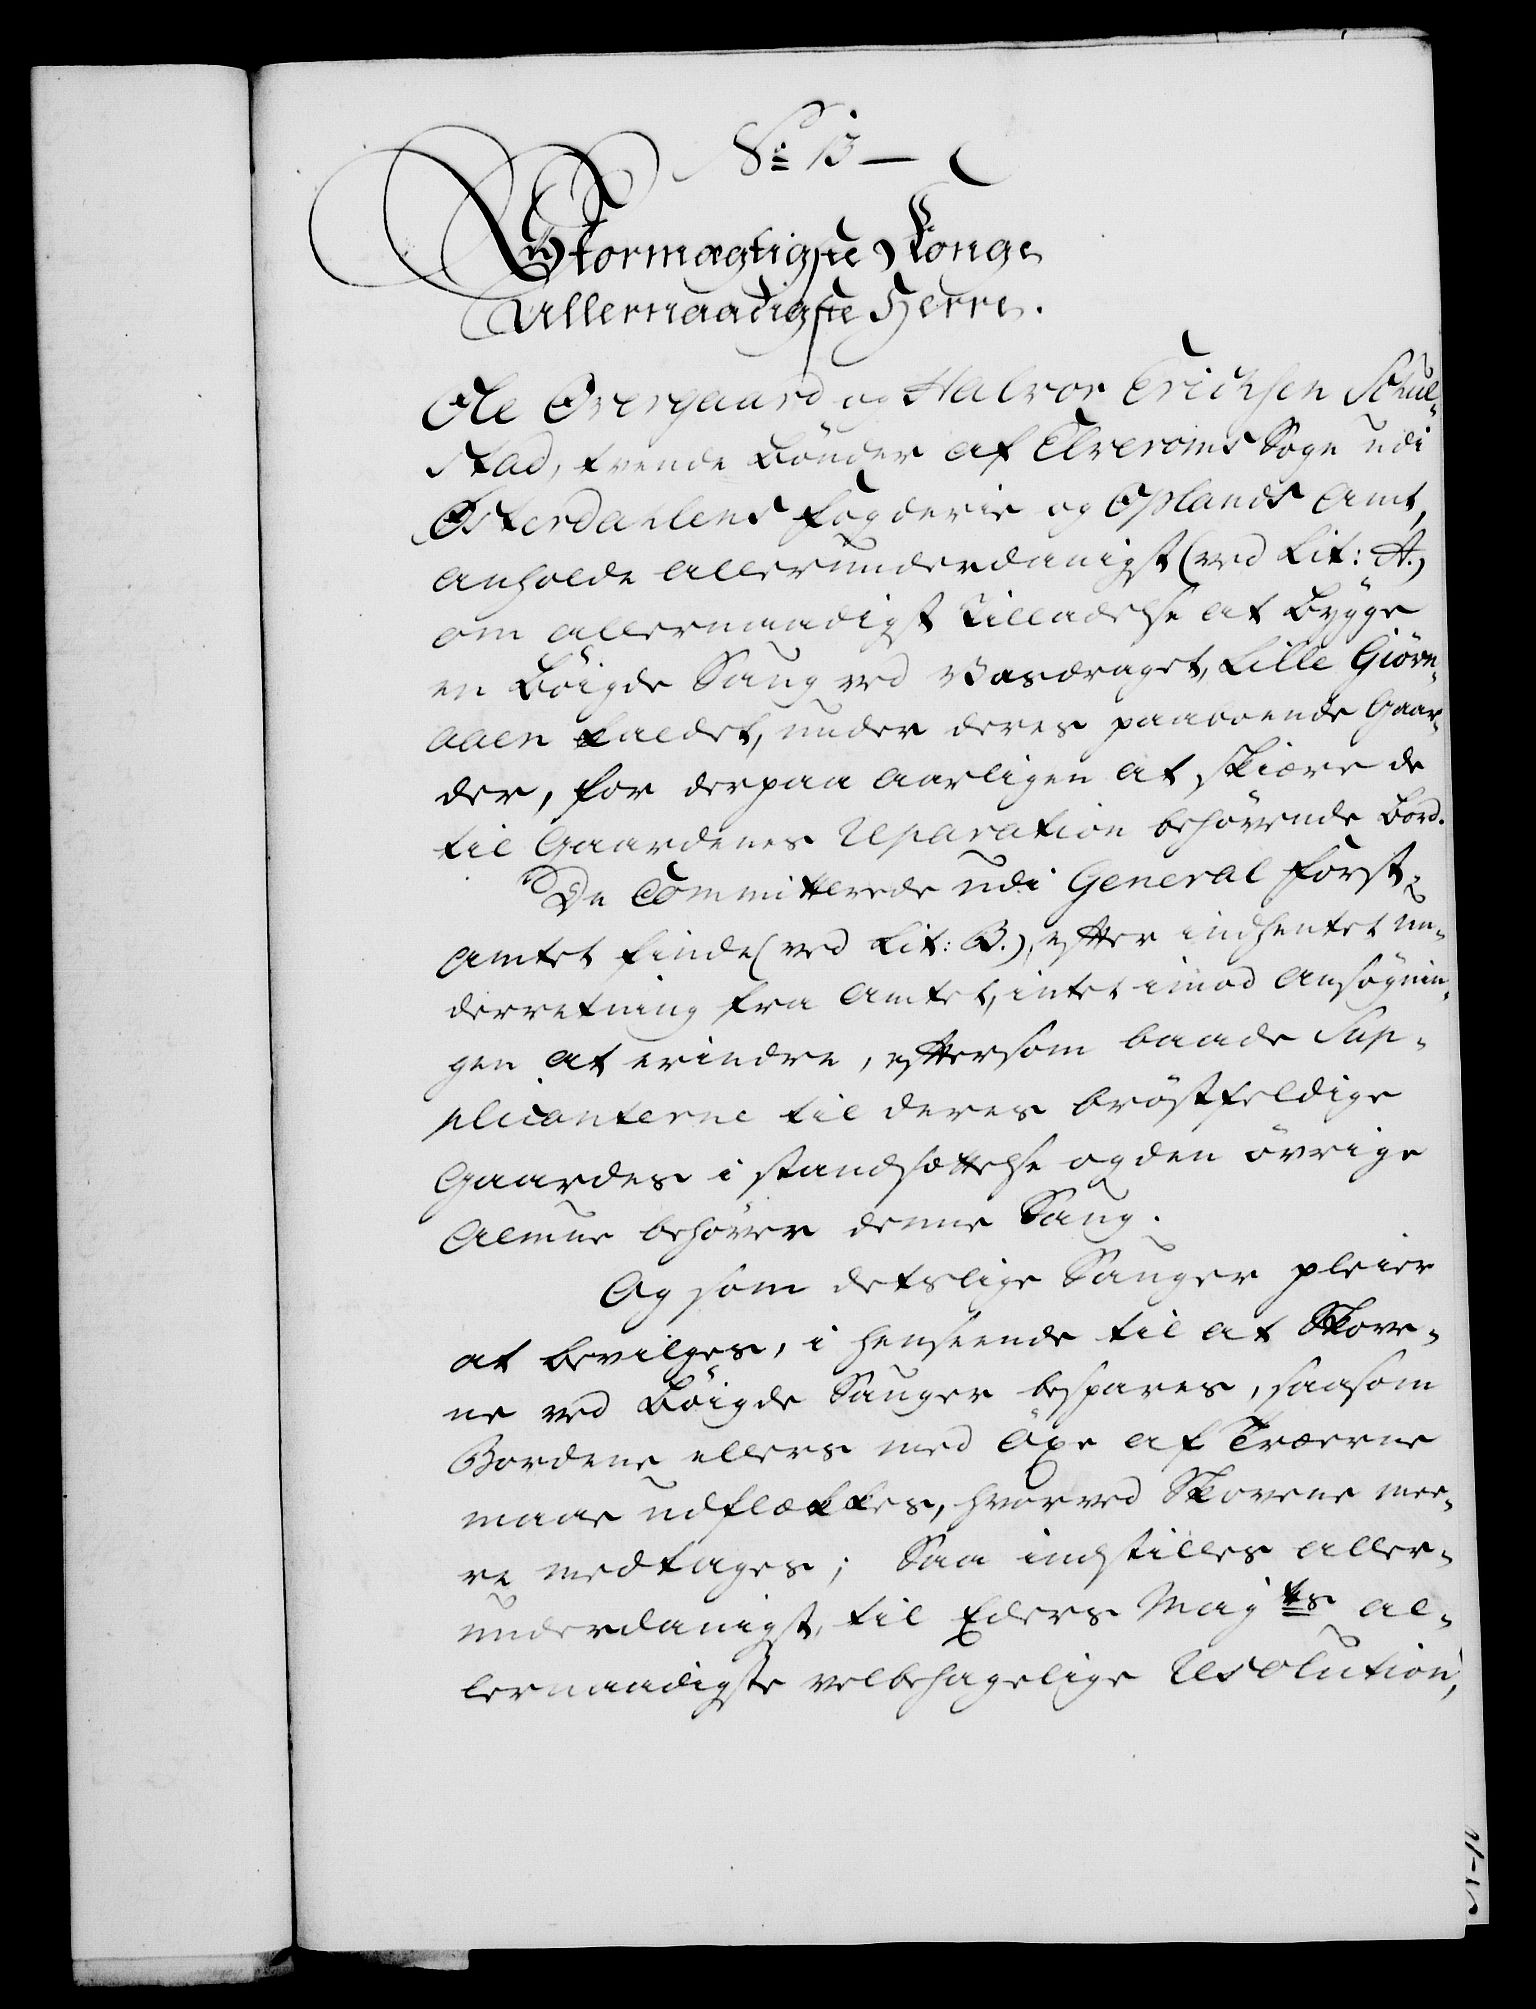 No 13 —
Stormægtigste Konge
Allernaadigste Herre.
Ole Overgaard og Halvor Erichsen Schul-
stad, tvende Bönder af Elveroms Sogn udi
Østerdahlens Fogderie og Oplands Amt,
anholde allerunderdanigst (ved Lit: A.)
om allernaadigst Tilladelse at bygge
en Böigde Saug ved Vasdraget, Lille Giörn-
aaen kaldet, under deres paaboende Gaar-
der, for derpaa aarligen at skiære de
til Gaardenes Reparation behövende Bord.
De Committerede udi General Forst-
Amtet finde (ved Lit: B.), efter indhentet un-
derretning fra Amtet, intet imod Ansøgnin-
gen at erindre, eftersom baade Sup-
plicanterne til deres bröstfeldige
Gaardes i standsættelse og den övrige
Almue behöver denne Saug.
Og som detslige Sauger pleier
at bevilges, i henseende til at Skove-
ne ved Böigde Sauger bespares, saasom
Bordene ellers med Öxe af Træerne
maae udflækkes, hvorved Skovene mee-
re medtages; Saa indstilles aller-
underdanigst, til Eders Majts al-
lernaadigste velbehagelige Resolution,